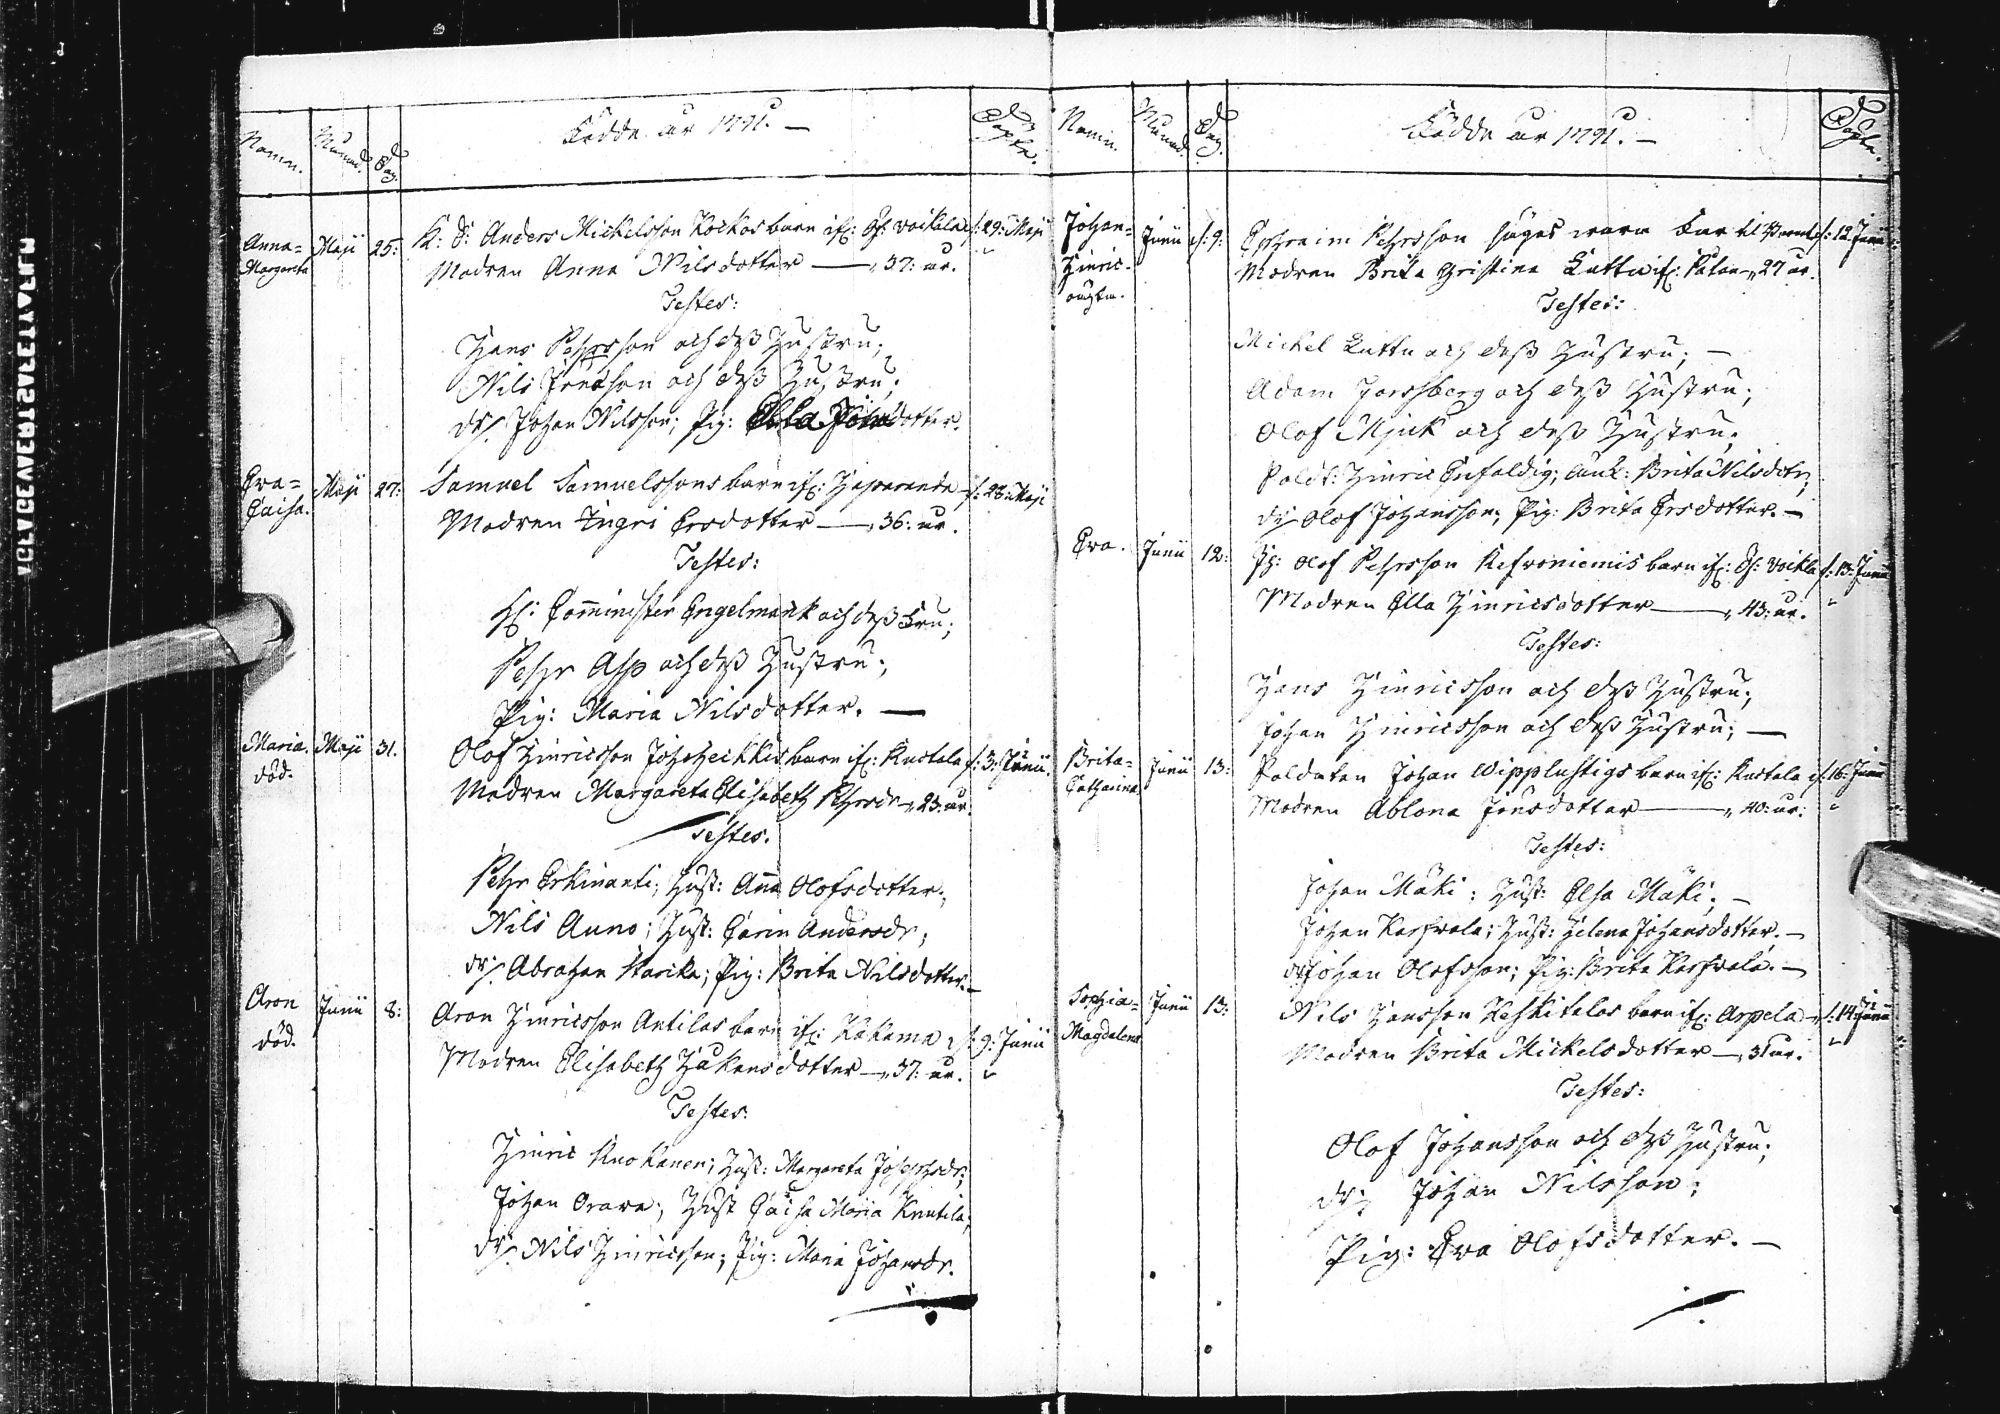 Namn. Månad. Dag. Födde år 1791. — Döpte.
Anna= Maji 25: K: S: Anders Michelsson Kockos barn if: Ö: Voikala d: 29: Maji
Margareta Modren Anna Nilsdotter — 37: år.
Testes:
Hans Pehrsson och deß Hustru;
Nils Jönsson och deß Hustru;
dr: Johan Nilsson; Pig: dotter.
Eva= Maji 27: Samuel Samuelssons barn if: Haparanda d: 28: Maji
Caisa. Modren Ingri Ersdotter — 36: år.
Testes:
H: Comminister Engelmark och deß Fru;
Pehr Asp och deß Hustru;
Pig: Maria Nilsdotter. —
Maria. Maji 31. Olof Hinricsson Johoheikkis barn if: Kustala d: 3: Junii.
död. Modren Margareta Elisabeth Pehrsdr — 23: år.
Testes.
Pehr Erkinanti; Hust: Anna Olofsdotter;
Nils Auno; Hust: Carin Andersdr;
dr: Abraham Starika; Pig: Brita Nilsdotter. —
Aron Junii 8: Aron Hinricsson Antilas barn if: Kåkama d: 9: Junii
död. Modren Elisabeth Håkansdotter — 37: år.
Testes:
Hinric Kuokanen; Hust: Margareta Josephsdr;
Johan Orava; Hust Caisa Maria Knutila;
dr: Nils Hinricsson; Pig: Maria Johansdr.
Namn. Månad. Dag. Födde år 1791. — Döpte.
Johan= Junii d: 9: Ephraim Pehrsson säges wara Far til Barnet d: 12 Junii
Hinric= Modren Brita Christina Luttu if: — 27 år.
oägta.
Testes:
Michel Luttu och deß Hustru; —
Adam Forssberg och deß Hustru;
Olof Mjuk och deß Hustru;
Soldt: Hinric Enfaldig; Änk: Brita Nilsdotr;
dr: Olof Johansson; Pig: Brita Ersdotter. —
Eva. Junii 12: H: Olof Pehrsson Kesroniemis barn if: Ö: Voikala d: 13: Junii
Modren Ella Hinricsdotter — 43: år.
Testes:
Hans Hinricsson och deß Hustru;
Johan Hinricsson och deß Hustru; —
Brita= Junii 13: Soldaten Johan Wipplustigs barn if: Kustala d: 16: Junii
Catharina. Modren Ablona Jönsdotter — 40: år:
Testes:
Johan Mäki; Hust: Elsa Mäki; —
Johan Karfvala; Hust: Helena Johansdotter. —
dr: Johan Olofsson; Pig: Brita Karfvala. —
Sophia= Junii 13: Nils Hansson Keskitalos barn if: Arpela d: 14: Junii
Magdalena Modren Brita Michelsdotter — 31 år.
Testes:
Olof Johansson och deß Hustru;
dr: Johan Nilsson;
Pig: Eva Olofsdotter. —